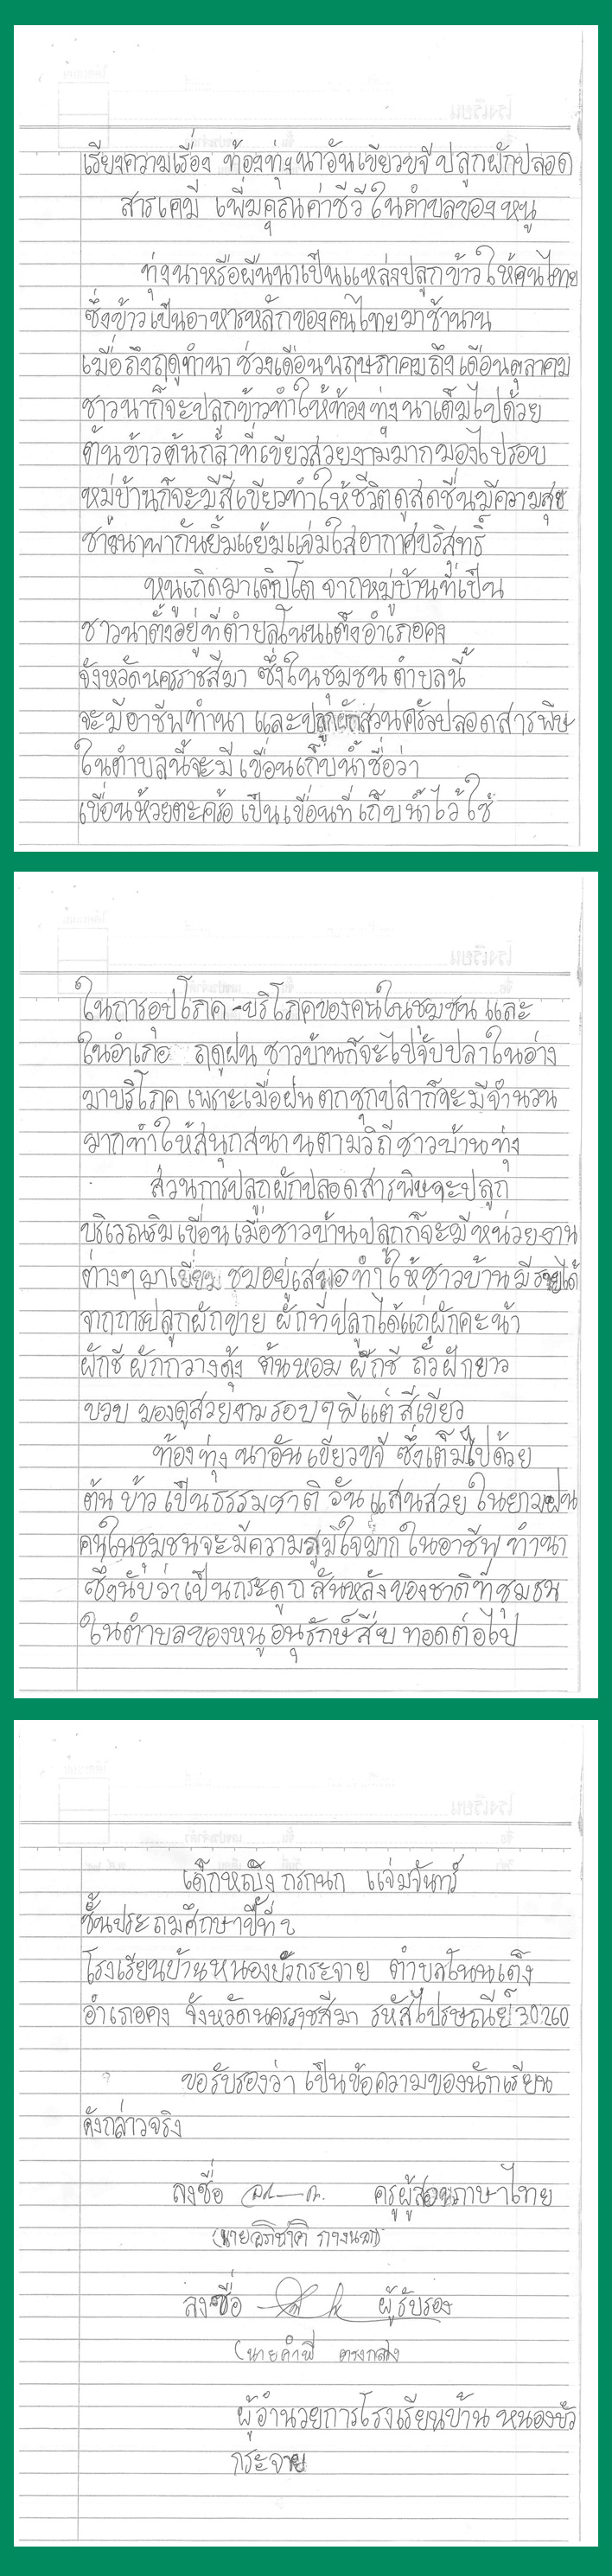 เรียงความเรื่อง ท้องทุ่งนาอันเขียวขจี ปลูกผักปลอด
สารเคมี เพิ่มคุณค่าชีวี ในตำบลของหนู
ทุ่งนาหรือผืนนาเป็นแหล่งปลูกข้าวให้คนไทย
ซึ่งข้าวเป็นอาหารหลักของคนไทยมาช้านาน
เมื่อถึงฤดูทำนา ช่วงเดือนพฤษภาคมถึงเดือนตุลาคม
ชาวนาก็จะปลูกข้าวทำให้ท้องทุ่งนาเต็มไปด้วย
ต้นข้าวต้นกล้าที่เขียวสวยงามมากมองไปรอบ
หมู่บ้านก็จะมีสีเขียวทำให้ชีวิตดูสดชื่นมีความสุข
ชาวนาพากันยิ้มแย้มแจ่มใสอากาศบริสุทธิ์
หนูเกิดมาเติบโต จากหมู่บ้านที่เป็น
ชาวนาตั้งอยู่ที่ตำบลโนนเต็งอำเภอคง
จังหวัดนครราชสีมา ซึ่งในชุมชน ตำบลนี้
จะมีอาชีพทำนา และปลูกผักสวนครัวปลอดสารพิษ
ในตำบลนี้จะมี เขื่อนเก็บน้ำชื่อว่า
เขื่อนห้วยตะคร้อ เป็นเขื่อนที่เก็บน้ำไว้ใช้
ในการอุปโภค-บริโภคของคนในชุมชน และ
ในอำเภอ ฤดูฝน ชาวบ้านก็จะไปจับปลาในอ่าง
มาบริโภค เพราะเมื่อฝนตกชุกปลาก็จะมีจำนวน
มากทำให้สนุกสนานตามวิถีชาวบ้านทุ่ง
ส่วนการปลูกผักปลอดสารพิษจะปลูก
บริเวณริมเขื่อน เมื่อชาวบ้านปลูกก็จะมีหน่วยงาน
ต่างๆมาเยี่ยม ชมอยู่เสมอ ทำให้ชาวบ้านมีรายได้
จากการปลูกผักขาย ผักที่ปลูกได้แก่ผักคะน้า
ผักชี ผักกวางตุ้ง ต้นหอม ผักชี ถั่วฝักยาว
บวบ มองดูสวยงามรอบๆมีแต่สีเขียว
ท้องทุ่งนาอันเขียวขจี ซึ่งเต็มไปด้วย
ต้นข้าว เป็นธรรมชาติ อันแสนสวย ในยามฝน
คนในชุมชนจะมีความภูมิใจมาก ในอาชีพ ทำนา
ซึ่งนับว่าเป็นกระดูกสันหลังของชาติที่ชุมชน
ในตำบลของหนู อนุรักษ์สืบ ทอดต่อไป
เด็กหญิง กรกนก แจ่มจันทร์
ชั้นประถมศึกษาปีที่ ๖
โรงเรียนบ้านหนองบัวกระจาย ตำบลโนนเต็ง
อำเภอคง จังหวัดนครราชสีมา รหัสไปรษณีย์ 30260
ขอรับรองว่า เป็นข้อความของนักเรียน
ดังกล่าวจริง
ลงชื่อ ครูผู้สอนภาษาไทย
ลงชื่อ ผู้รับรอง
ผู้อำนวยการโรงเรียนบ้าน หนองบัว
กระจาย